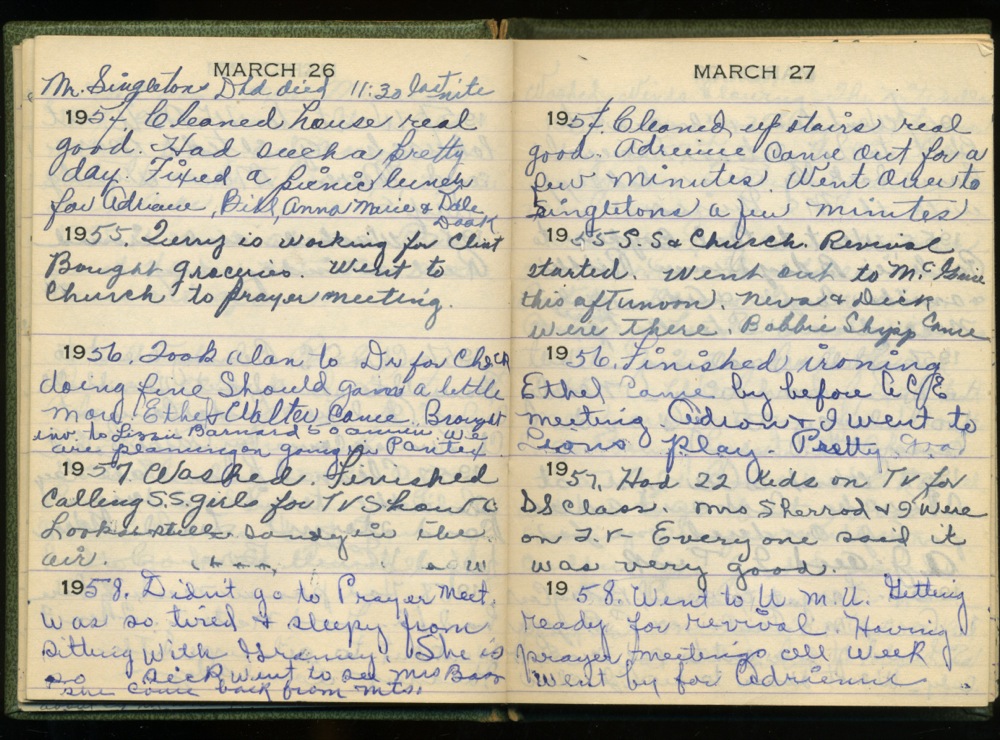 MARCH 26
Mr. Singletons Dad died 11:30 last nite
1954. Cleaned house real
good. Had such a pretty
day. Fixed a picnic lunch
for Adriane, Bill, Anna Marie & Dale
Doak
1955. Jerry is working for Clint
Bought groceries. Went to
Church to prayer meeting.
1956. Took Alan to Dr for check
doing fine Should gain a little
more. Ethel & Walter came Brought
inv. to Lizzie Barnard 50 anniv. We
are planning on going in Pantex
1957. Washed. Finished
Calling S.S. girls for TV Show
Looks still sandy in the
air.
1958. Didn't go to Prayer Meet.
was so tired & sleepy from
Sitting with Granny. She is
so sick Went to see Mrs
she come back from Mts.
MARCH 27
1954. Cleaned up stairs real
good. Adrienne came out for a
few minutes. Went over to
Singletons a few minutes
1955 S.S & Church. Revival
started. Went out to
this afternoon. Neva & Dick
were there. Bobbie Shipp came
1956. Finished ironing
Ethel came by before
meeting. & I went to
Lions play. Pretty Good
1957. Had 22 kids on TV for
SS Class. Mrs Sherrod & I were
on T.V. Every one said it
was very good.
1958. Went to W.M.U. Getting
ready for revival. Having
prayer meetings all week
Went by for Adrienne